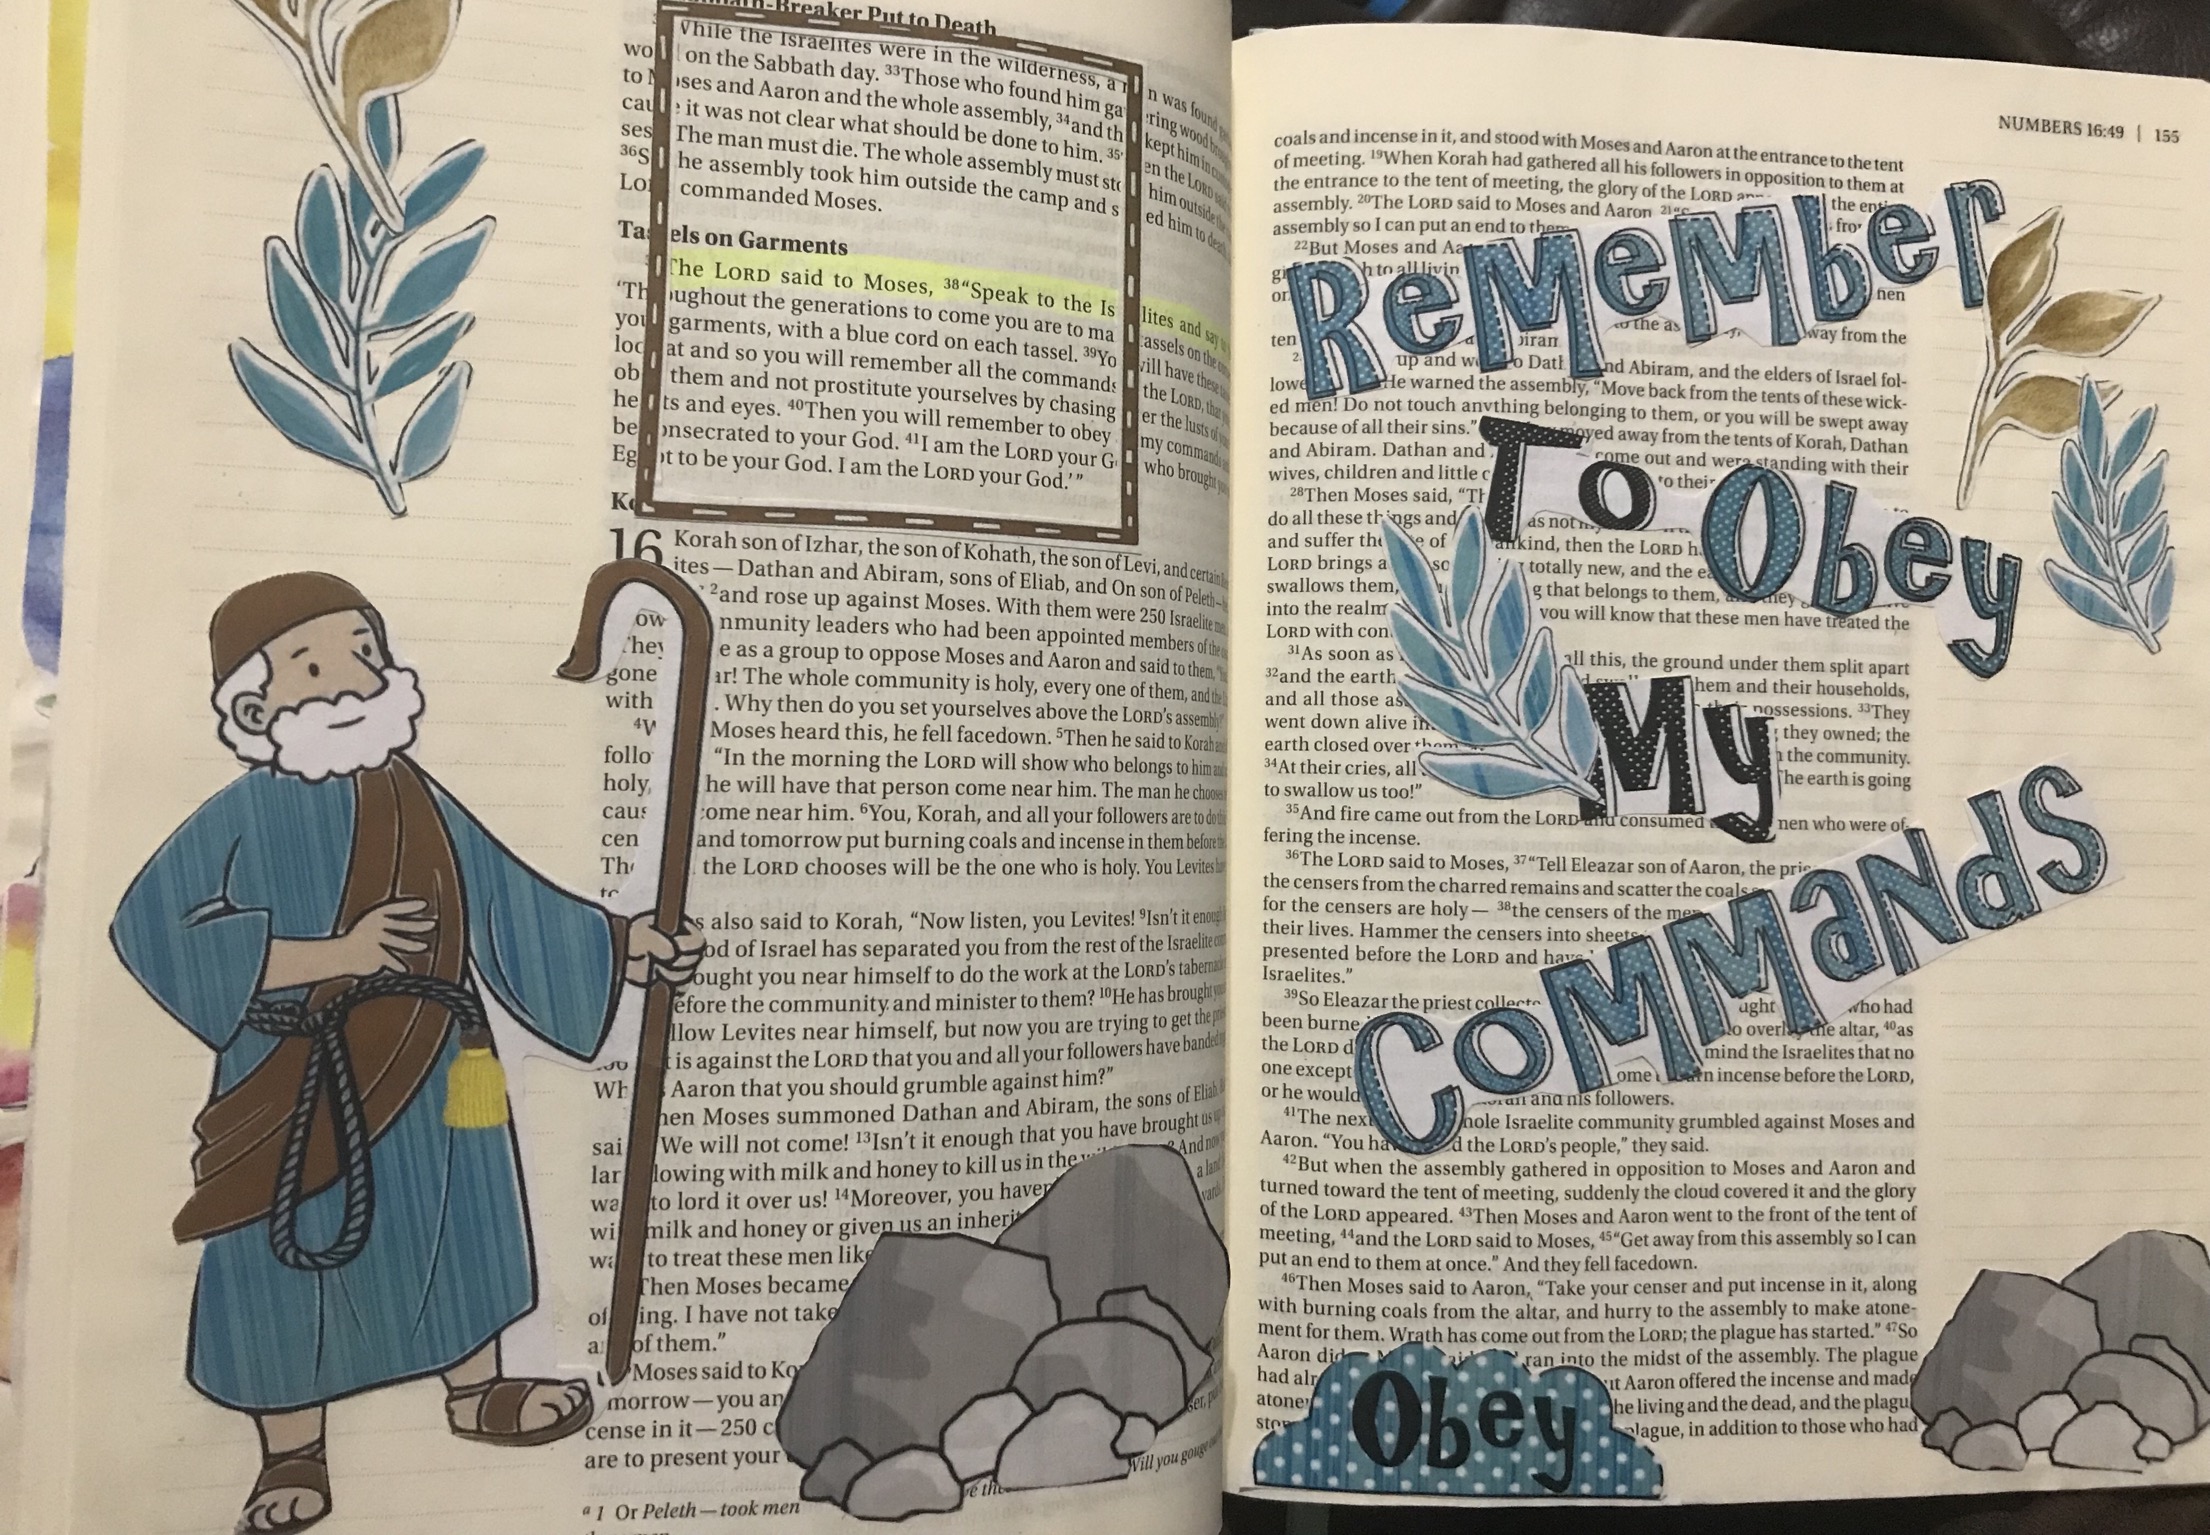 -Breaker Put to Death
While the Israelites were in the wilderness, a n was found
wo on the Sabbath day. 33Those who found him ga ring wood
to M ses and Aaron and the whole assembly, 34and th kept him in
cau e it was not clear what should be done to him. 35 en the LORD
ses The man must die. The whole assembly must sto him outside the
36S he assembly took him outside the camp and s ed him to death
Lo commanded Moses.
Tas els on Garments
The LORD said to Moses, 38“Speak to the Is lites and say
‘Th oughout the generations to come you are to ma assels on the
you garments, with a blue cord on each tassel. 39Yo ill have these
loo at and so you will remember all the commands the LORD, that
ob them and not prostitute yourselves by chasing er the lusts of
he ts and eyes. 40Then you will remember to obey my commands
be onsecrated to your God. 41I am the LORD your G who brought
Eg t to be your God. I am the LORD your God.’”
Ko
16 Korah son of Izhar, the son of Kohath, the son of Levi, and certain
ites—Dathan and Abiram, sons of Eliab, and On son of Peleth—
2and rose up against Moses. With them were 250 Israelite
ow nmunity leaders who had been appointed members of the
They e as a group to oppose Moses and Aaron and said to them,
gone ar! The whole community is holy, every one of them, and
with . Why then do you set yourselves above the LORD’s assembly
4W Moses heard this, he fell facedown. 5Then he said to Korah
follo “In the morning the LORD will show who belongs to him
holy, he will have that person come near him. The man he chooses
caus ome near him. 6You, Korah, and all your followers are to do
cen and tomorrow put burning coals and incense in them before
The the LORD chooses will be the one who is holy. You Levites
to
s also said to Korah, “Now listen, you Levites! 9Isn’t it enough
od of Israel has separated you from the rest of the Israelite
ought you near himself to do the work at the LORD’s
efore the community and minister to them? 10He has brought
llow Levites near himself, but now you are trying to get the
t is against the LORD that you and all your followers have banded
Wh Aaron that you should grumble against him?”
hen Moses summoned Dathan and Abiram, the sons of Eliab
sai We will not come! 13Isn’t it enough that you have brought us
lar lowing with milk and honey to kill us in the And now
wa to lord it over us! 14Moreover, you haven a land
wi milk and honey or given us an inherit
wa to treat these men like
Then Moses became
of ing. I have not take
a of them.”
Moses said to Ko
morrow—you an
cense in it—250 c
are to present your
Will you gouge
a 1 Or Peleth—took men
NUMBERS 16:49 | 155
coals and incense in it, and stood with Moses and Aaron at the entrance to the tent
of meeting. 19When Korah had gathered all his followers in opposition to them at
the entrance to the tent of meeting, the glory of the LORD the enti
assembly. 20The LORD said to Moses and Aaron 21“S fro
assembly so I can put an end to them
22But Moses and Aa
gi h to all livin
on men
ReMeMber
to the as way from the
ten biram
2 up and w o Dath nd Abiram, and the elders of Israel fol-
lowe He warned the assembly, “Move back from the tents of these wick-
ed men! Do not touch anything belonging to them, or you will be swept away
because of all their sins.” moved away from the tents of Korah, Dathan
and Abiram. Dathan and come out and were standing with their
wives, children and little c o their
To Obey
28Then Moses said, “Th
do all these things and as not
and suffer the e of ankind, then the LORD h
LORD brings a so totally new, and the ea
swallows them, g that belongs to them, they
into the realm you will know that these men have treated the
LORD with con
31As soon as all this, the ground under them split apart
32and the earth hem and their households,
and all those as possessions. 33They
went down alive in they owned; the
earth closed over them the community.
34At their cries, all The earth is going
to swallow us too!”
My
35And fire came out from the LORD and consumed men who were of-
fering the incense.
36The LORD said to Moses, 37“Tell Eleazar son of Aaron, the prie
the censers from the charred remains and scatter the coals
for the censers are holy— 38the censers of the men
their lives. Hammer the censers into sheets
presented before the LORD and have
Israelites.”
CoMMaNdS
39So Eleazar the priest collecte ught who had
been burne to overlay the altar, 40as
the LORD d mind the Israelites that no
one except ome burn incense before the LORD,
or he would Korah and his followers.
41The next hole Israelite community grumbled against Moses and
Aaron. “You ha d the LORD’s people,” they said.
42But when the assembly gathered in opposition to Moses and Aaron and
turned toward the tent of meeting, suddenly the cloud covered it and the glory
of the LORD appeared. 43Then Moses and Aaron went to the front of the tent of
meeting, 44and the LORD said to Moses, 45“Get away from this assembly so I can
put an end to them at once.” And they fell facedown.
46Then Moses said to Aaron, “Take your censer and put incense in it, along
with burning coals from the altar, and hurry to the assembly to make atone-
ment for them. Wrath has come out from the LORD; the plague has started.” 47So
Aaron did ran into the midst of the assembly. The plague
had alr ut Aaron offered the incense and made
atone he living and the dead, and the plagu
stop plague, in addition to those who had
Obey